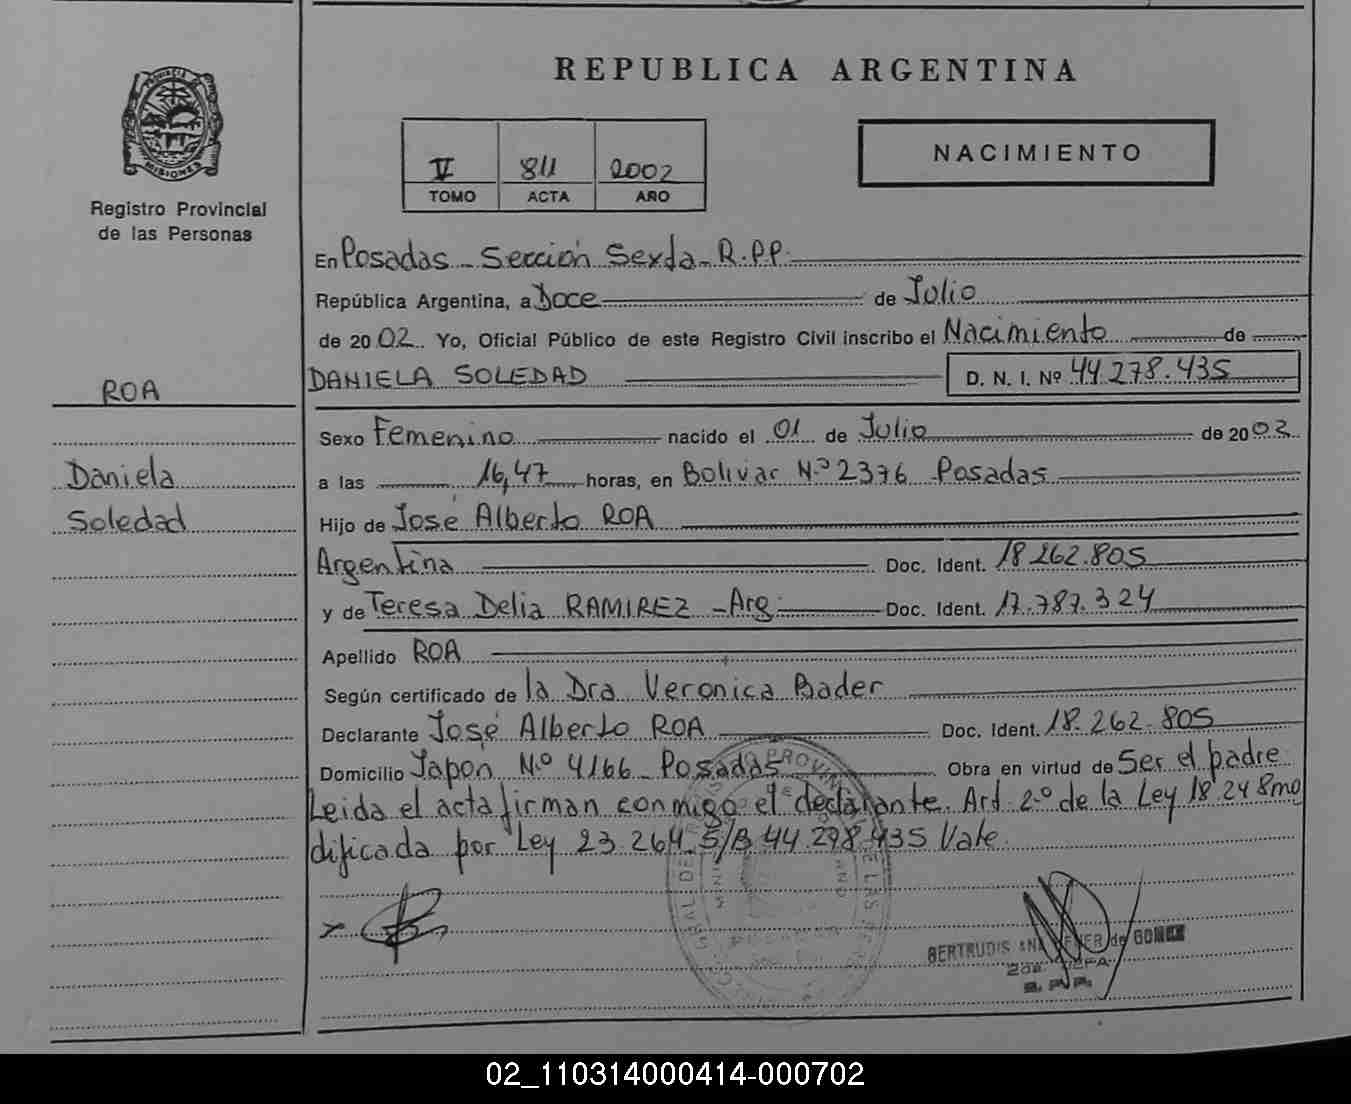 REPUBLICA ARGENTINA
PROVINCIA DE
MISIONES
Registro Provincial
de las Personas
V 811 2002
TOMO ACTA AÑO
NACIMIENTO
En Posadas - Sección Sexta - R.PP.
República Argentina, a Doce de Julio
de 2002. Yo, Oficial Público de este Registro Civil inscribo el Nacimiento de
DANIELA SOLEDAD D. N. I. Nº 44.278.435
ROA
Sexo Femenino nacido el 01 de Julio de 2002
Daniela
a las 16,47 horas, en Bolivar N.º 2376 Posadas
Soledad
Hijo de José Alberto ROA
Argentina Doc. Ident. 18.262.805
y de Teresa Delia RAMIREZ - Arg. Doc. Ident. 17.787.324
Apellido ROA
Según certificado de la Dra. Veronica Bader
Declarante José Alberto ROA Doc. Ident. 18.262.805
Domicilio Japon N.º 4166 - Posadas Obra en virtud de Ser el padre
Leida el acta firman conmigo el declarante. Art. 2.º de la Ley 18.248 mo
dificada por Ley 23.264. S/B 44.278.435 Vale.
GERTRUDIS ANA de
2da. JEFA
R. P. P.
02_110314000414-000702